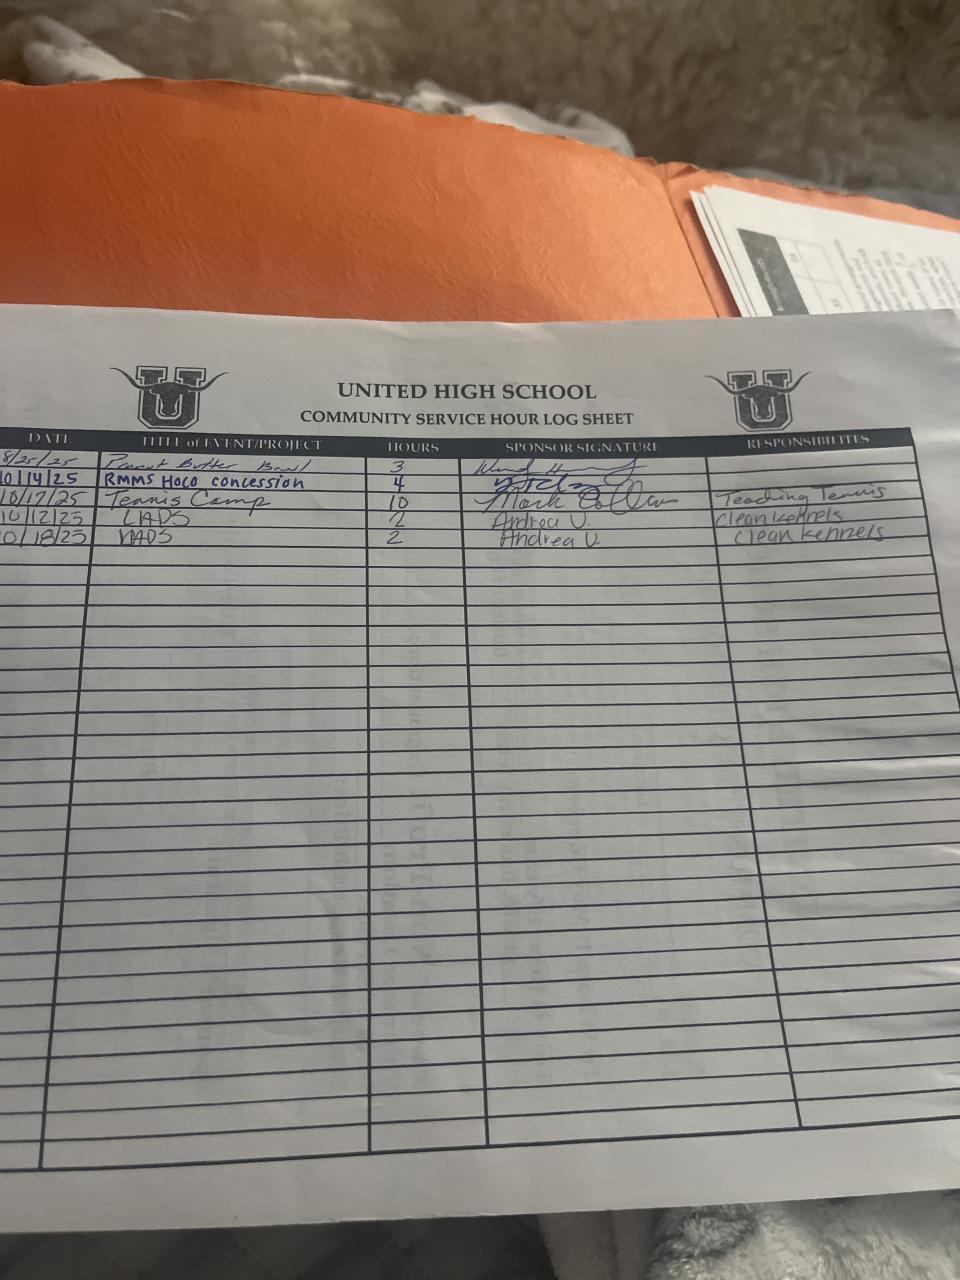 UNITED HIGH SCHOOL
COMMUNITY SERVICE HOUR LOG SHEET
DATE TITLE of EVENT/PROJECT HOURS SPONSOR SIGNATURE RESPONSIBILITES
8/25/25 Peanut Butter Bowl 3
10/14/25 RMMS HOCO concession 4
10/17/25 Tennis Camp 10 Mark Teaching Tennis
10/12/25 LADS 2 Andrea U. Clean kennels
10/18/25 2 Andrea U. Clean kennels